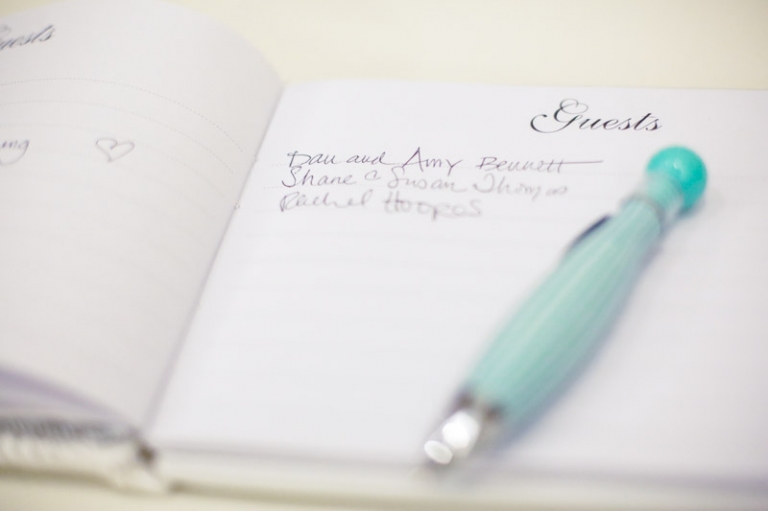 Guests
Dan and Amy Bennett
Shane & Susan Thomas
Rachel Hoopes